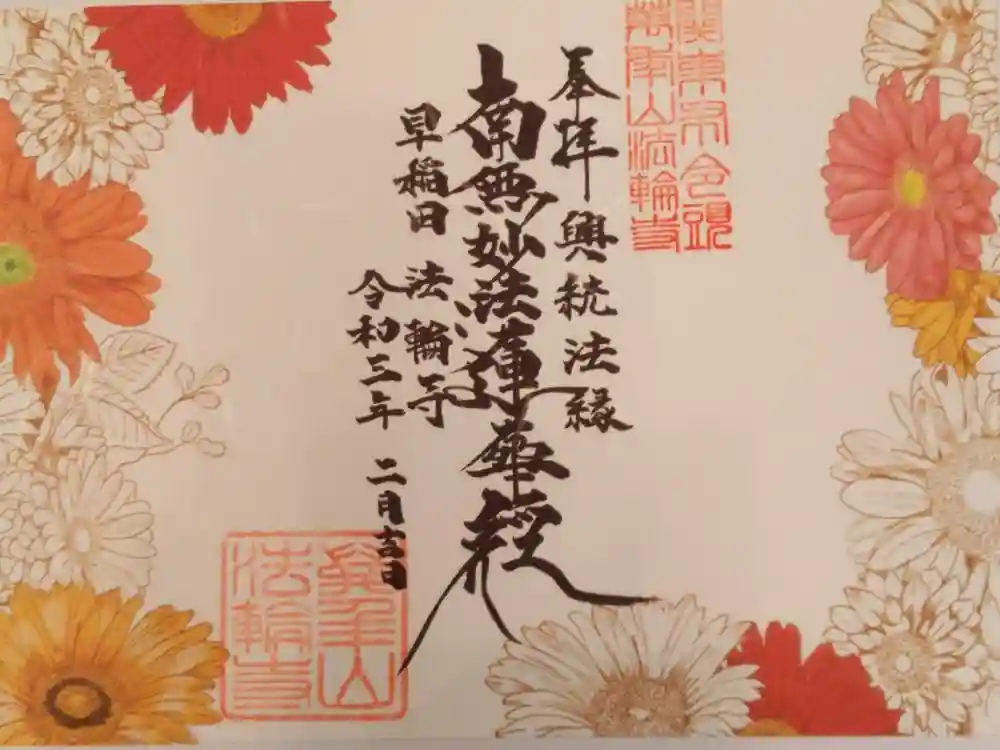 關東
萬年山法輪寺
奉拝 興統法縁
南無妙法蓮華經
早稲田 法輪寺
令和三年 二月吉日
萬年山
法輪寺